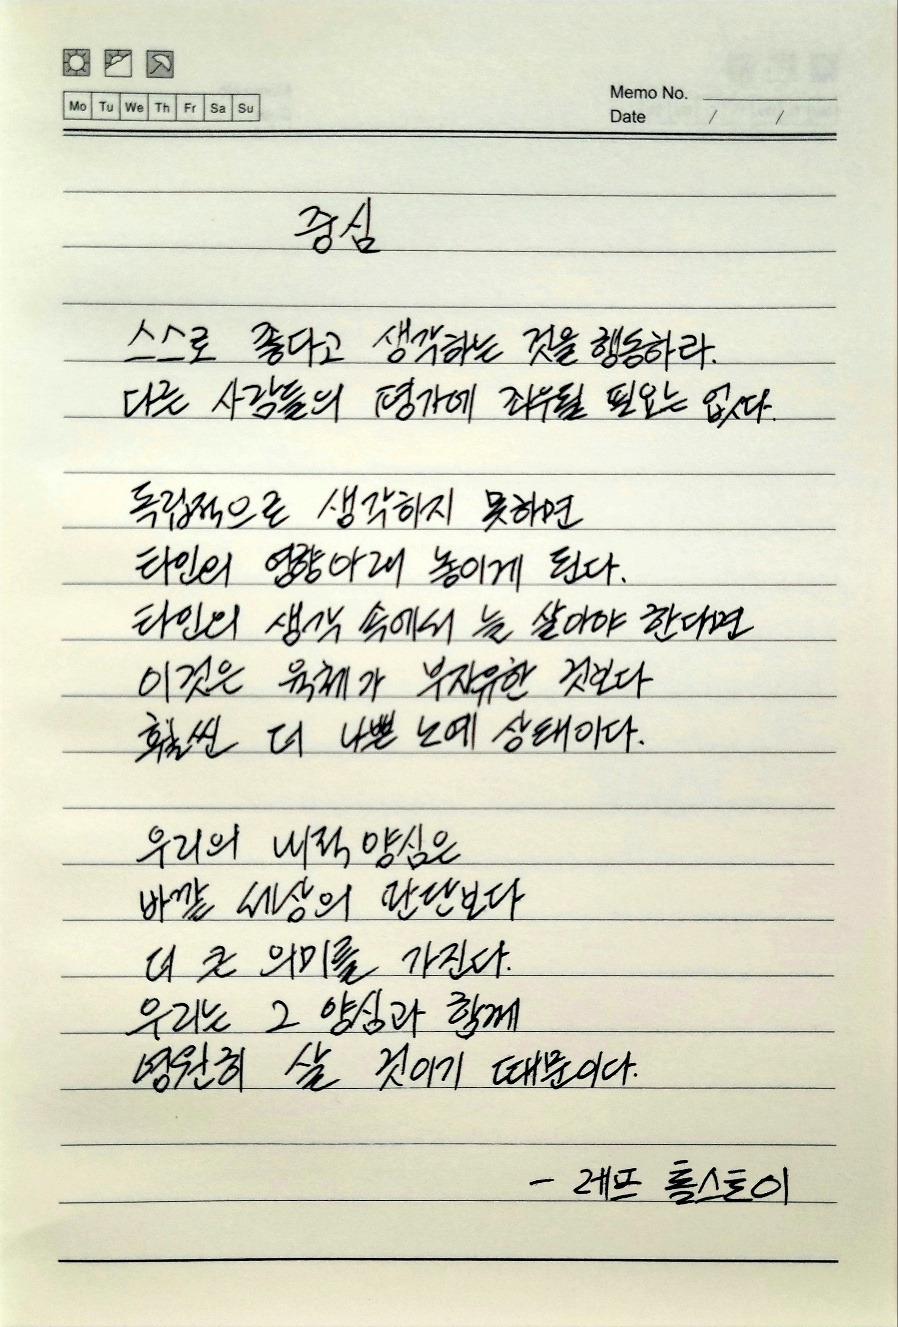 Memo No.
Mo Tu We Th Fr Sa Su
Date / /
중심
스스로 좋다고 생각하는 것을 행동하라.
다른 사람들의 평가에 좌우될 필요는 없다.
독립적으로 생각하지 못하면
타인의 영향아래 놓이게 된다.
타인의 생각 속에서 늘 살아야 한다면
이것은 육체가 부자유한 것보다
훨씬 더 나쁜 노예 상태이다.
우리의 내적 양심은
바깥 세상의 판단보다
더 큰 의미를 가진다.
우리는 그 양심과 함께
영원히 살 것이기 때문이다.
- 레프 톨스토이